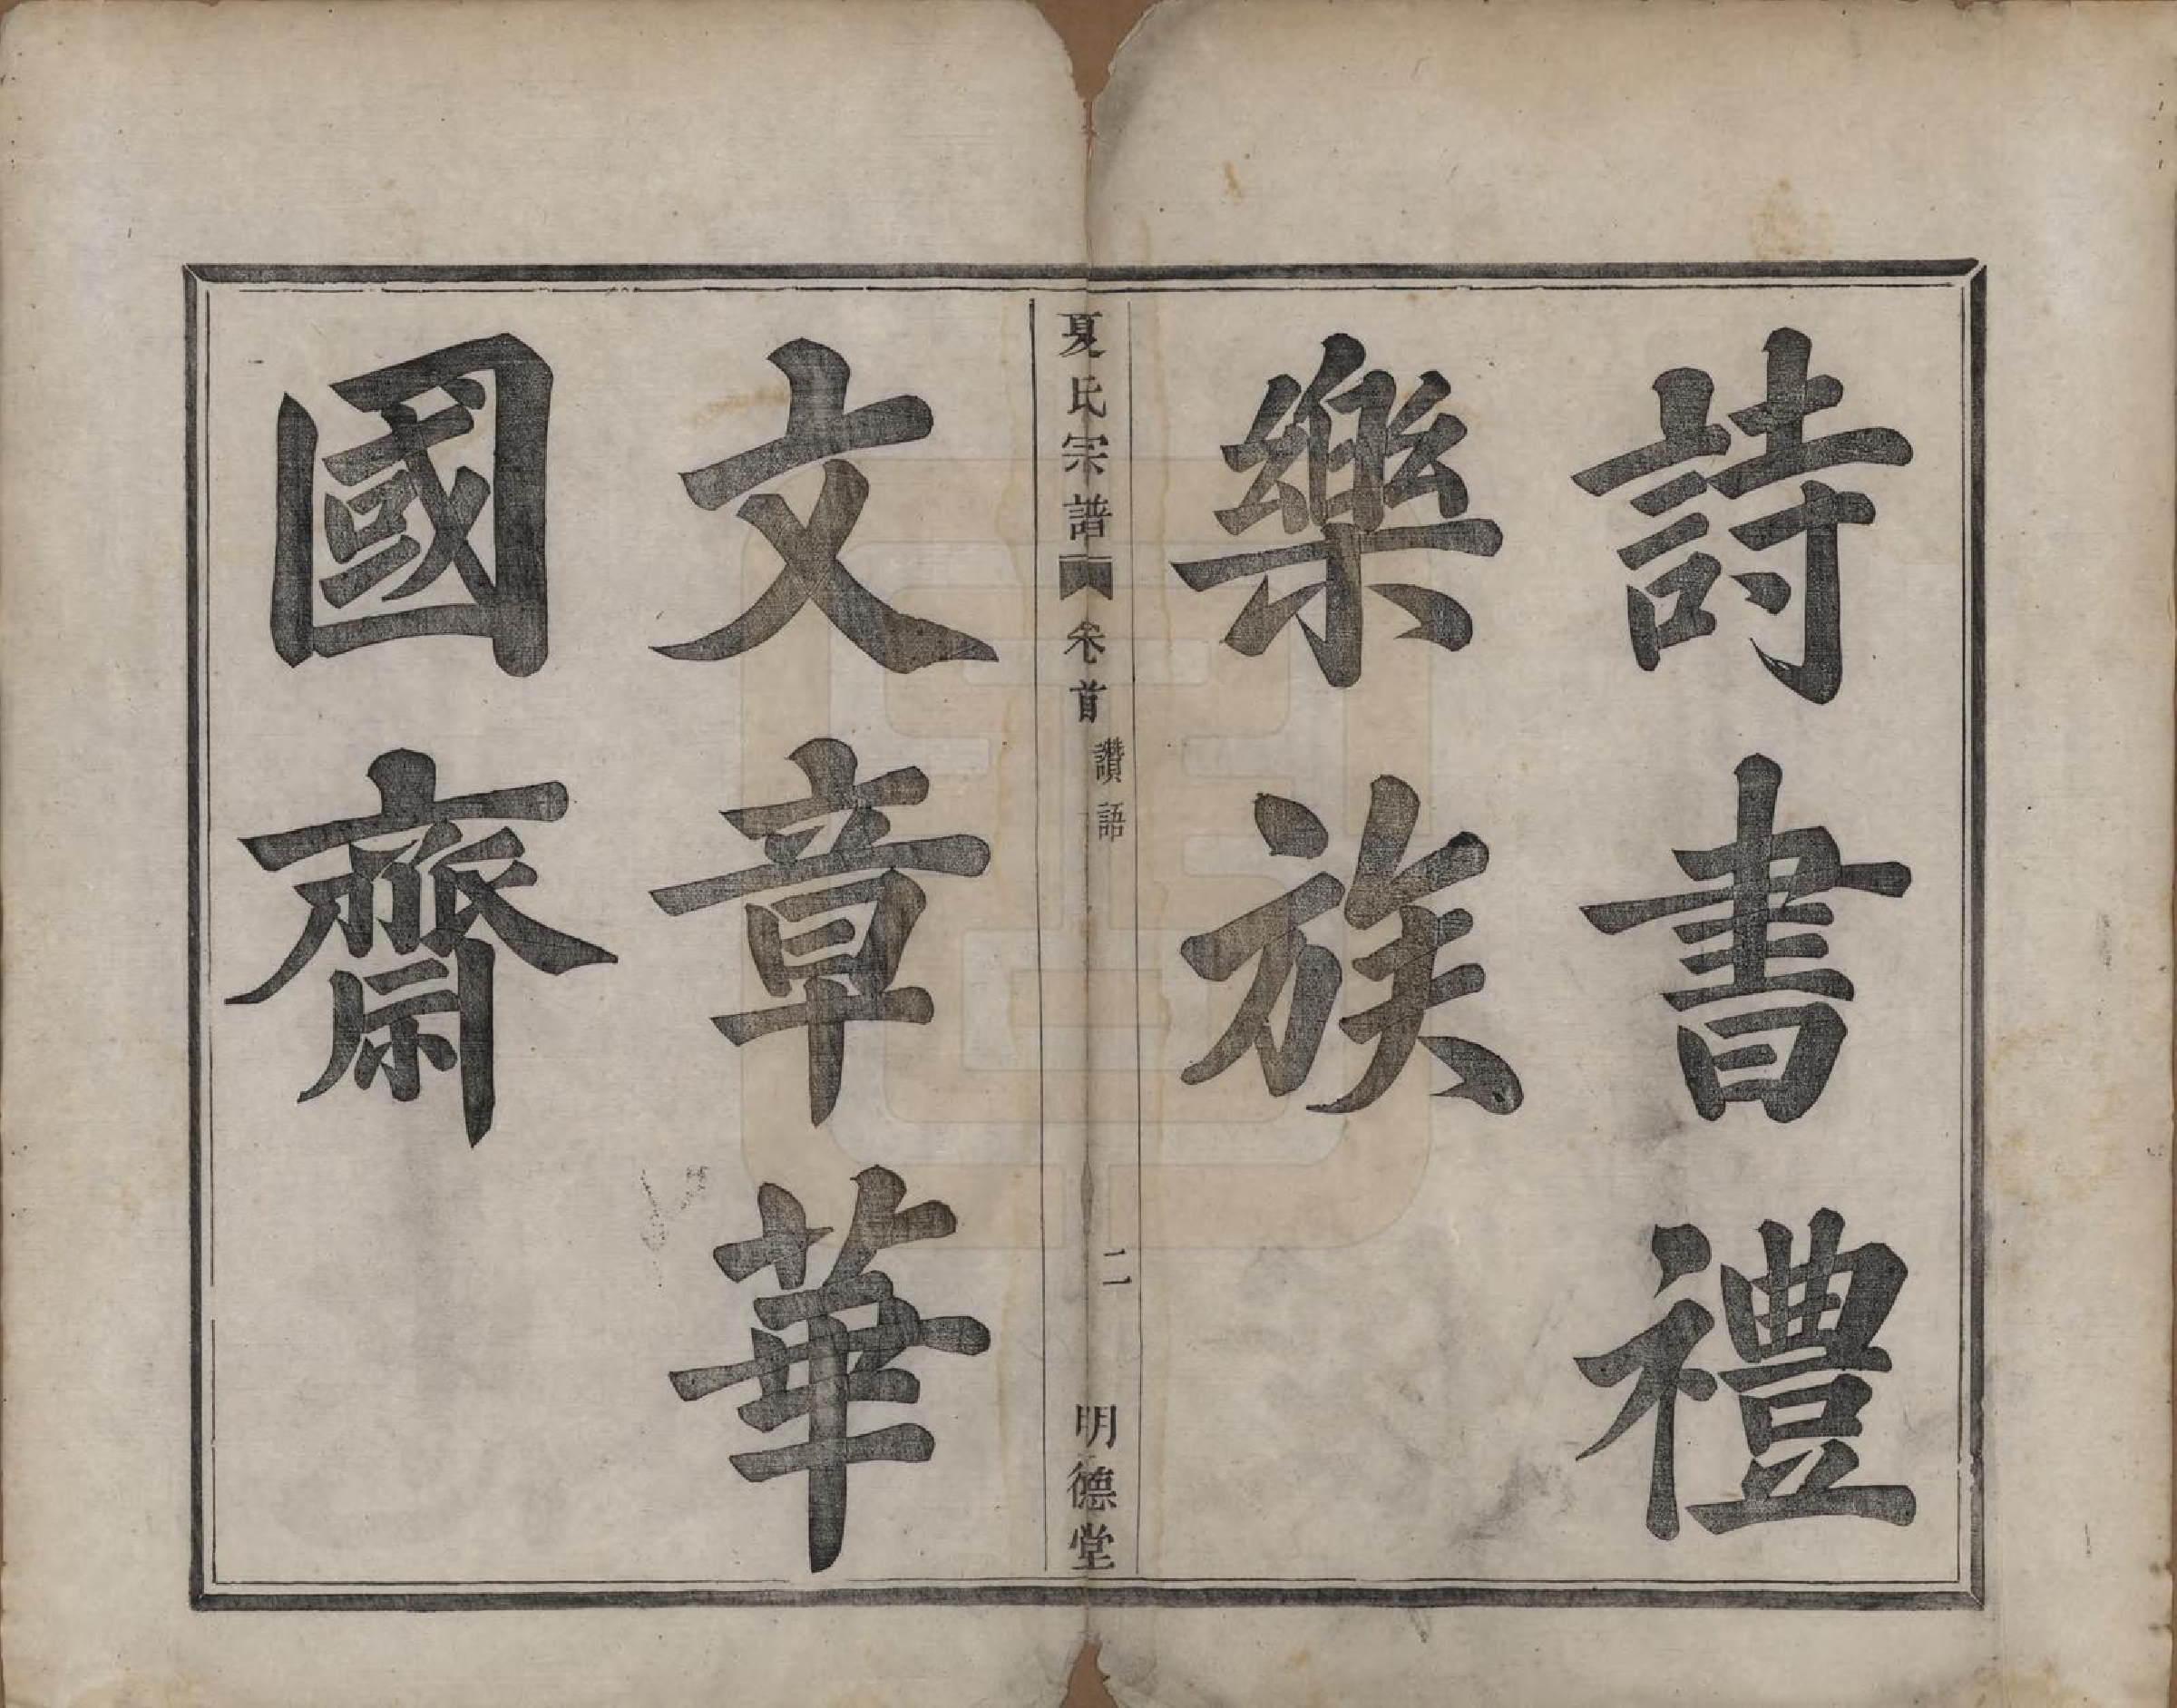 詩書禮
樂族
夏氏宗譜 卷首 讚語 二 明德堂
文章華
國齋